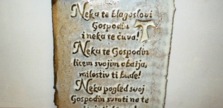 Neka te blagoslovi
Gospodin
i neka te čuva!
Neka te Gospodin
licem svojim obasja,
milostiv ti bude!
Neka pogled svoj
Gospodin svrati na te